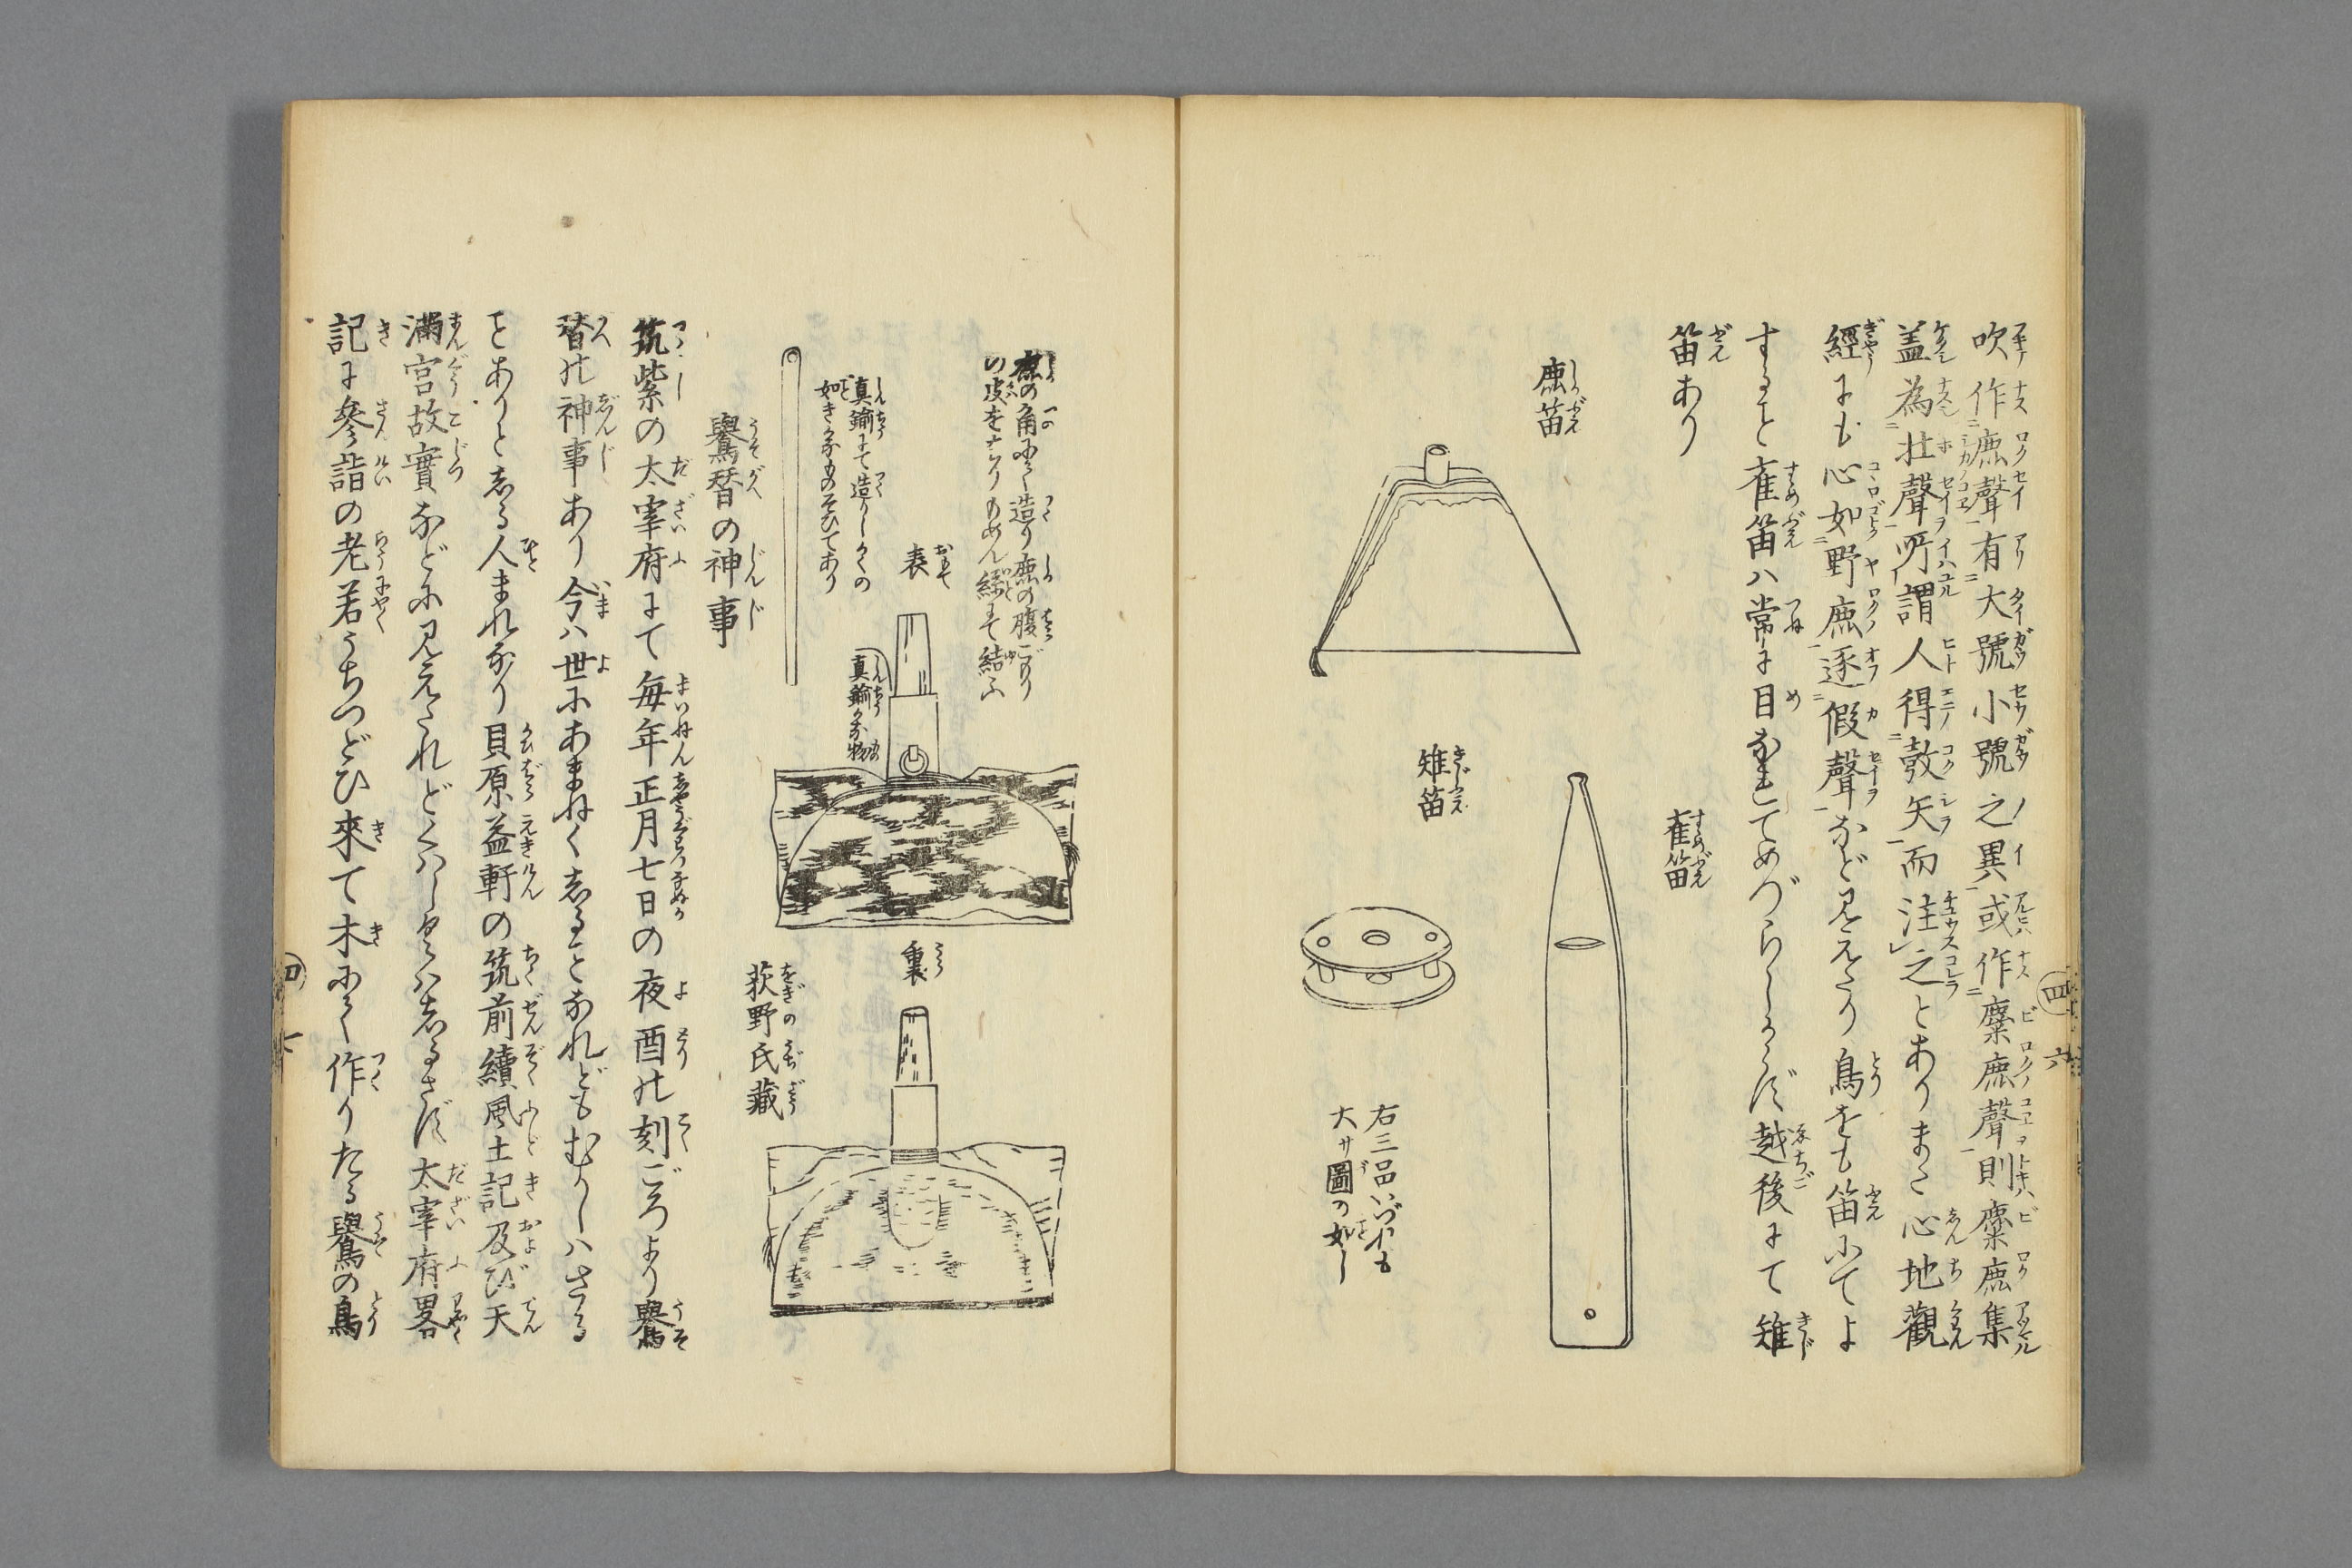 吹作鹿聲有大號小號之異或作麋鹿聲則麋鹿集
盖為牡聲所謂人得彀矢而注之とありまた心地觀
經にも心如野鹿逐假聲など見えたり鳥をも笛にてよ
すると雀笛ハ常に目なれてめづらしからず越後にて雉
笛あり
鹿笛
雀笛
雉笛
右三品いづれも
大サ圖の如し
四 六
鹿の角にて造り鹿の腹ごもり
の皮をはりもめん絲にて結ふ
表
真鍮にて造りしかくの
如きかなものそひてあり
真鍮かな物
裏
荻野氏藏
鷽替の神事
筑紫の太宰府にて毎年正月七日の夜酉の刻ごろより鷽
替の神事あり今ハ世にあまねくしることなれどもむかしハさる
ことありとしる人まれなり貝原益軒の筑前續風土記及び天
滿宮故實などに見えたれどくハしくハしるさず太宰府畧
記に參詣の老若うちつどひ來て木にて作りたる鷽の鳥
四 七